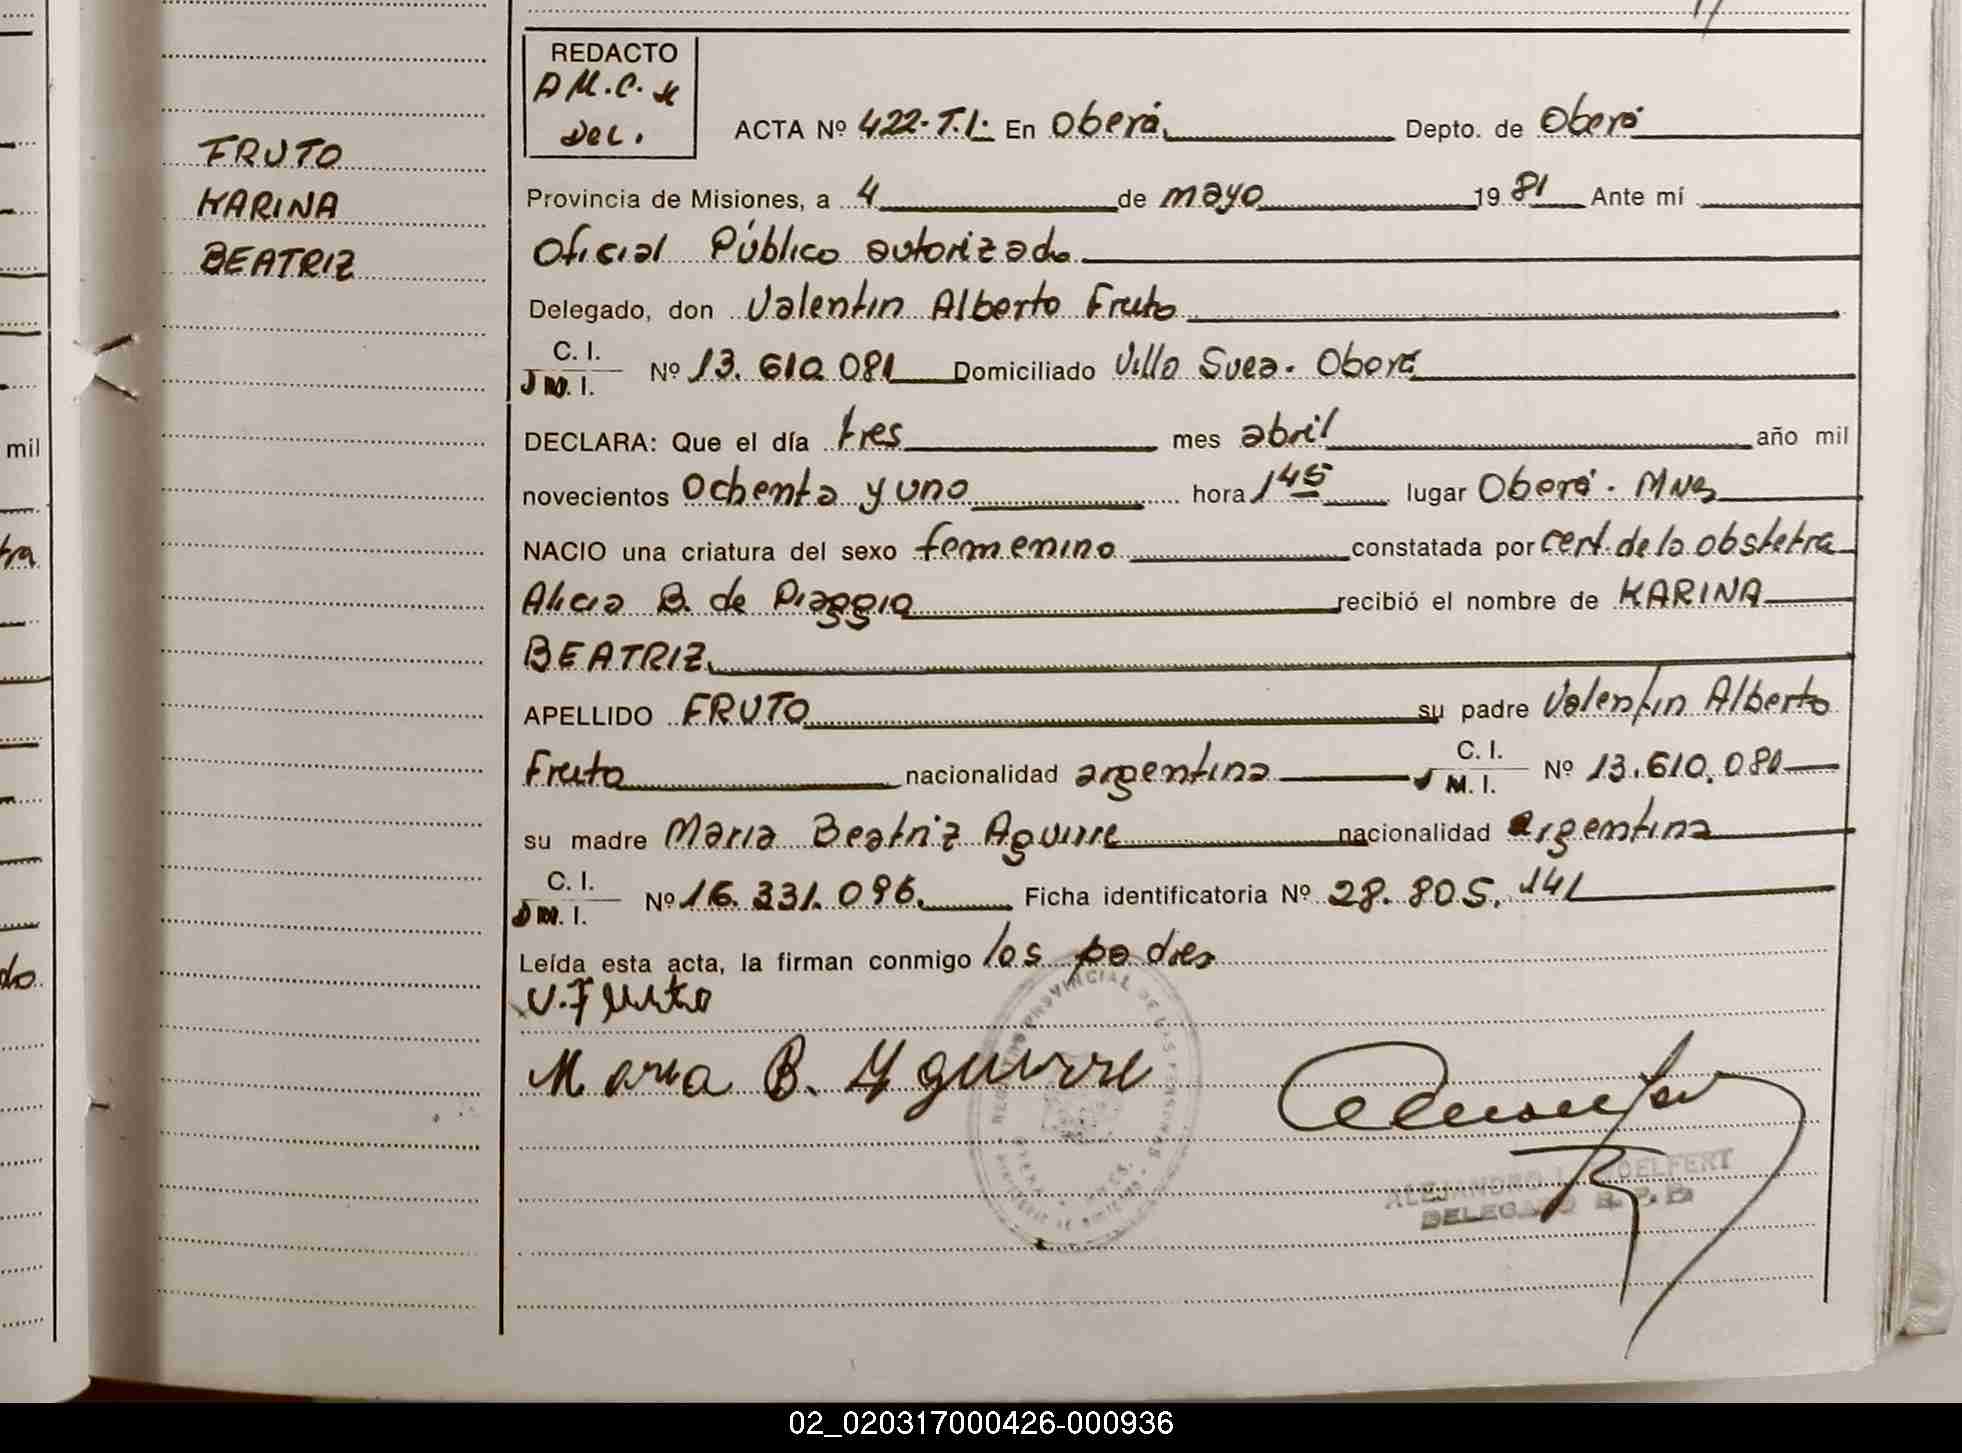 REDACTO
A M.C. M
DEL.
ACTA Nº 422-T.I. En Oberá, Depto. de Oberá
FRUTO
KARINA
BEATRIZ
Provincia de Misiones, a 4 de mayo 1981 Ante mí
Oficial Público autorizado
Delegado, don Valentin Alberto Fruto
C. I.
D M. I. Nº 13.610.081 Domiciliado Villa Svea. Oberá
DECLARA: Que el día tres mes abril año mil
novecientos Ochenta y uno hora 1 45 lugar Oberá. Mnes
NACIO una criatura del sexo femenino constatada por cert. de la obstetra
Alicia B. de Piaggio recibió el nombre de KARINA
BEATRIZ.
APELLIDO FRUTO su padre Valentin Alberto
Fruto nacionalidad argentina C. I.
M. I. Nº 13.610.081
su madre Maria Beatriz Aguirre nacionalidad argentina
C. I.
D M. I. Nº 16.331.096. Ficha identificatoria Nº 28.805.141
Leída esta acta, la firman conmigo los padres
V. Fruto
Maria B. Aguirre
REGISTRO PROVINCIAL DE LAS PERSONAS
ALEJANDRO
DELEGADO R. P. P.
mil
tra
do
02_020317000426-000936